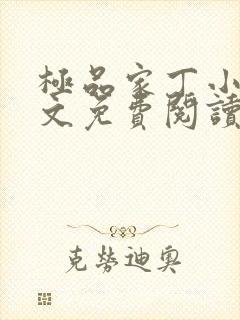 極品家丁小
文免費閱讀
克勞迪奧